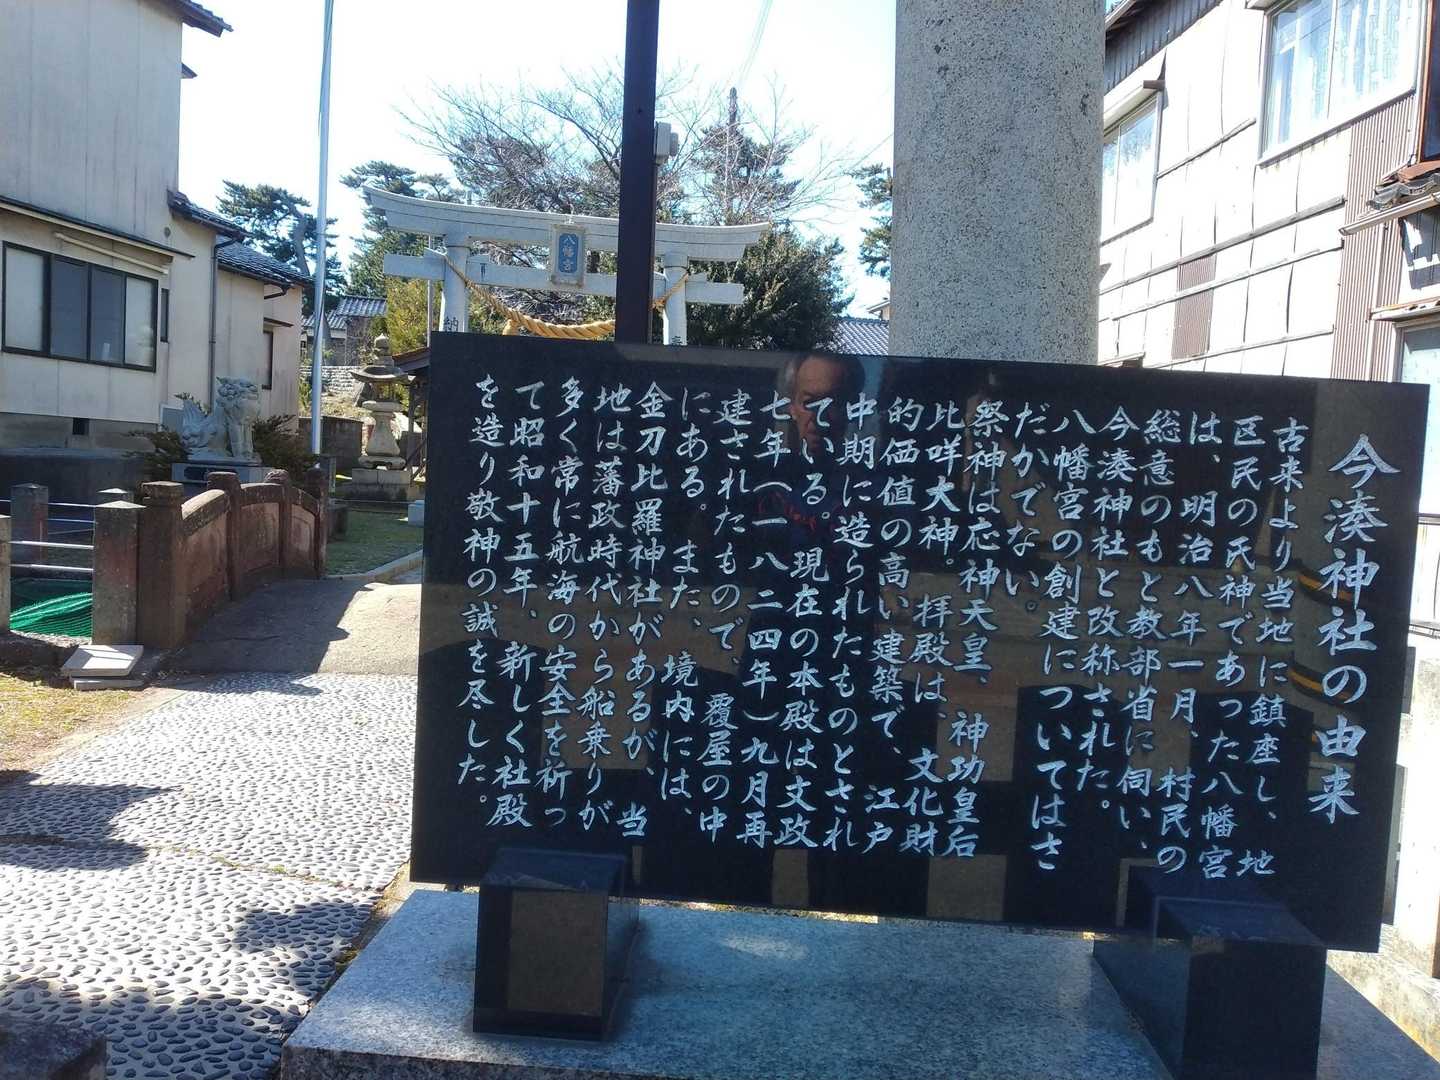 今湊神社の由来
古来より当地に鎮座し、地
区民の氏神であった八幡宮
は、明治八年一月、村民の
総意のもと教部省に伺い、
今湊神社と改称された。
八幡宮の創建についてはさ
だかでない。
祭神は応神天皇、神功皇后
比咩大神。拝殿は、文化財
的価値の高い建築で、江戸
中期に造られたものとされ
ている。現在の本殿は文政
七年(一八二四年)九月再
建されたもので、覆屋の中
にある。また、境内には、
金刀比羅神社があるが、当
地は藩政時代から船乗りが
多く常に航海の安全を祈っ
て昭和十五年、新しく社殿
を造り敬神の誠を尽した。
八幡宮